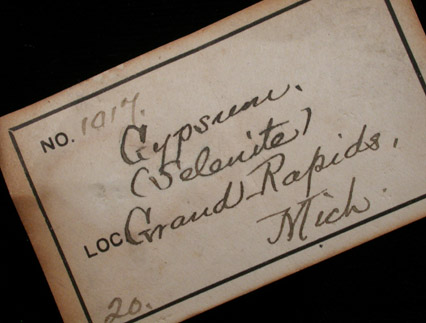 NO. 1017.
Gypsum.
(Selenite)
LOC Grand Rapids,
Mich.
20.